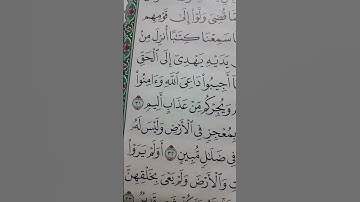 ا قُضِىَ وَلَّوۡا۟ إِلَىٰ قَوۡمِهِم
سَمِعۡنَا كِتَٰبًا أُنزِلَ مِنۢ
يَدَيۡهِ يَهۡدِىٓ إِلَى ٱلۡحَقِّ
أَجِيبُوا۟ دَاعِىَ ٱللَّهِ وَءَامِنُوا۟
وَيُجِرۡكُم مِّنۡ عَذَابٍ أَلِيمٍ ٣١
بِمُعۡجِزٍ فِى ٱلۡأَرۡضِ وَلَيۡسَ لَهُۥ
فِى ضَلَٰلٍ مُّبِينٍ ٣٢ أَوَلَمۡ يَرَوۡا۟
وَٱلۡأَرۡضَ وَلَمۡ يَعۡىَ بِخَلۡقِهِنَّ